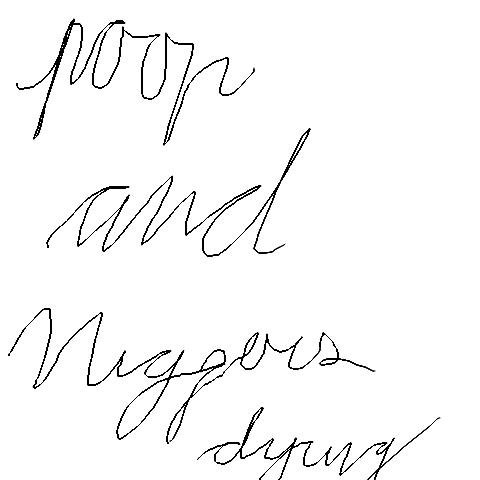 poop
and
Niggers
dying